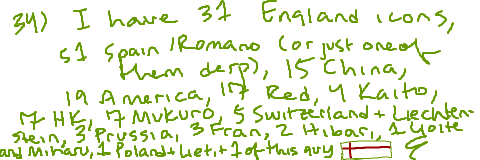 34) I have 31 England icons,
51 Spain/Romano (or just one of
them derp), 15 China,
19 America, 17 Red, 4 Kaito,
7 HK, 7 Mukuro, 5 Switzerland + Liechten-
stein, 3 Prussia, 3 Fran, 2 Hibari, 1 Yoite
and Miharu, 1 Poland + Liet, + 1 of this guy